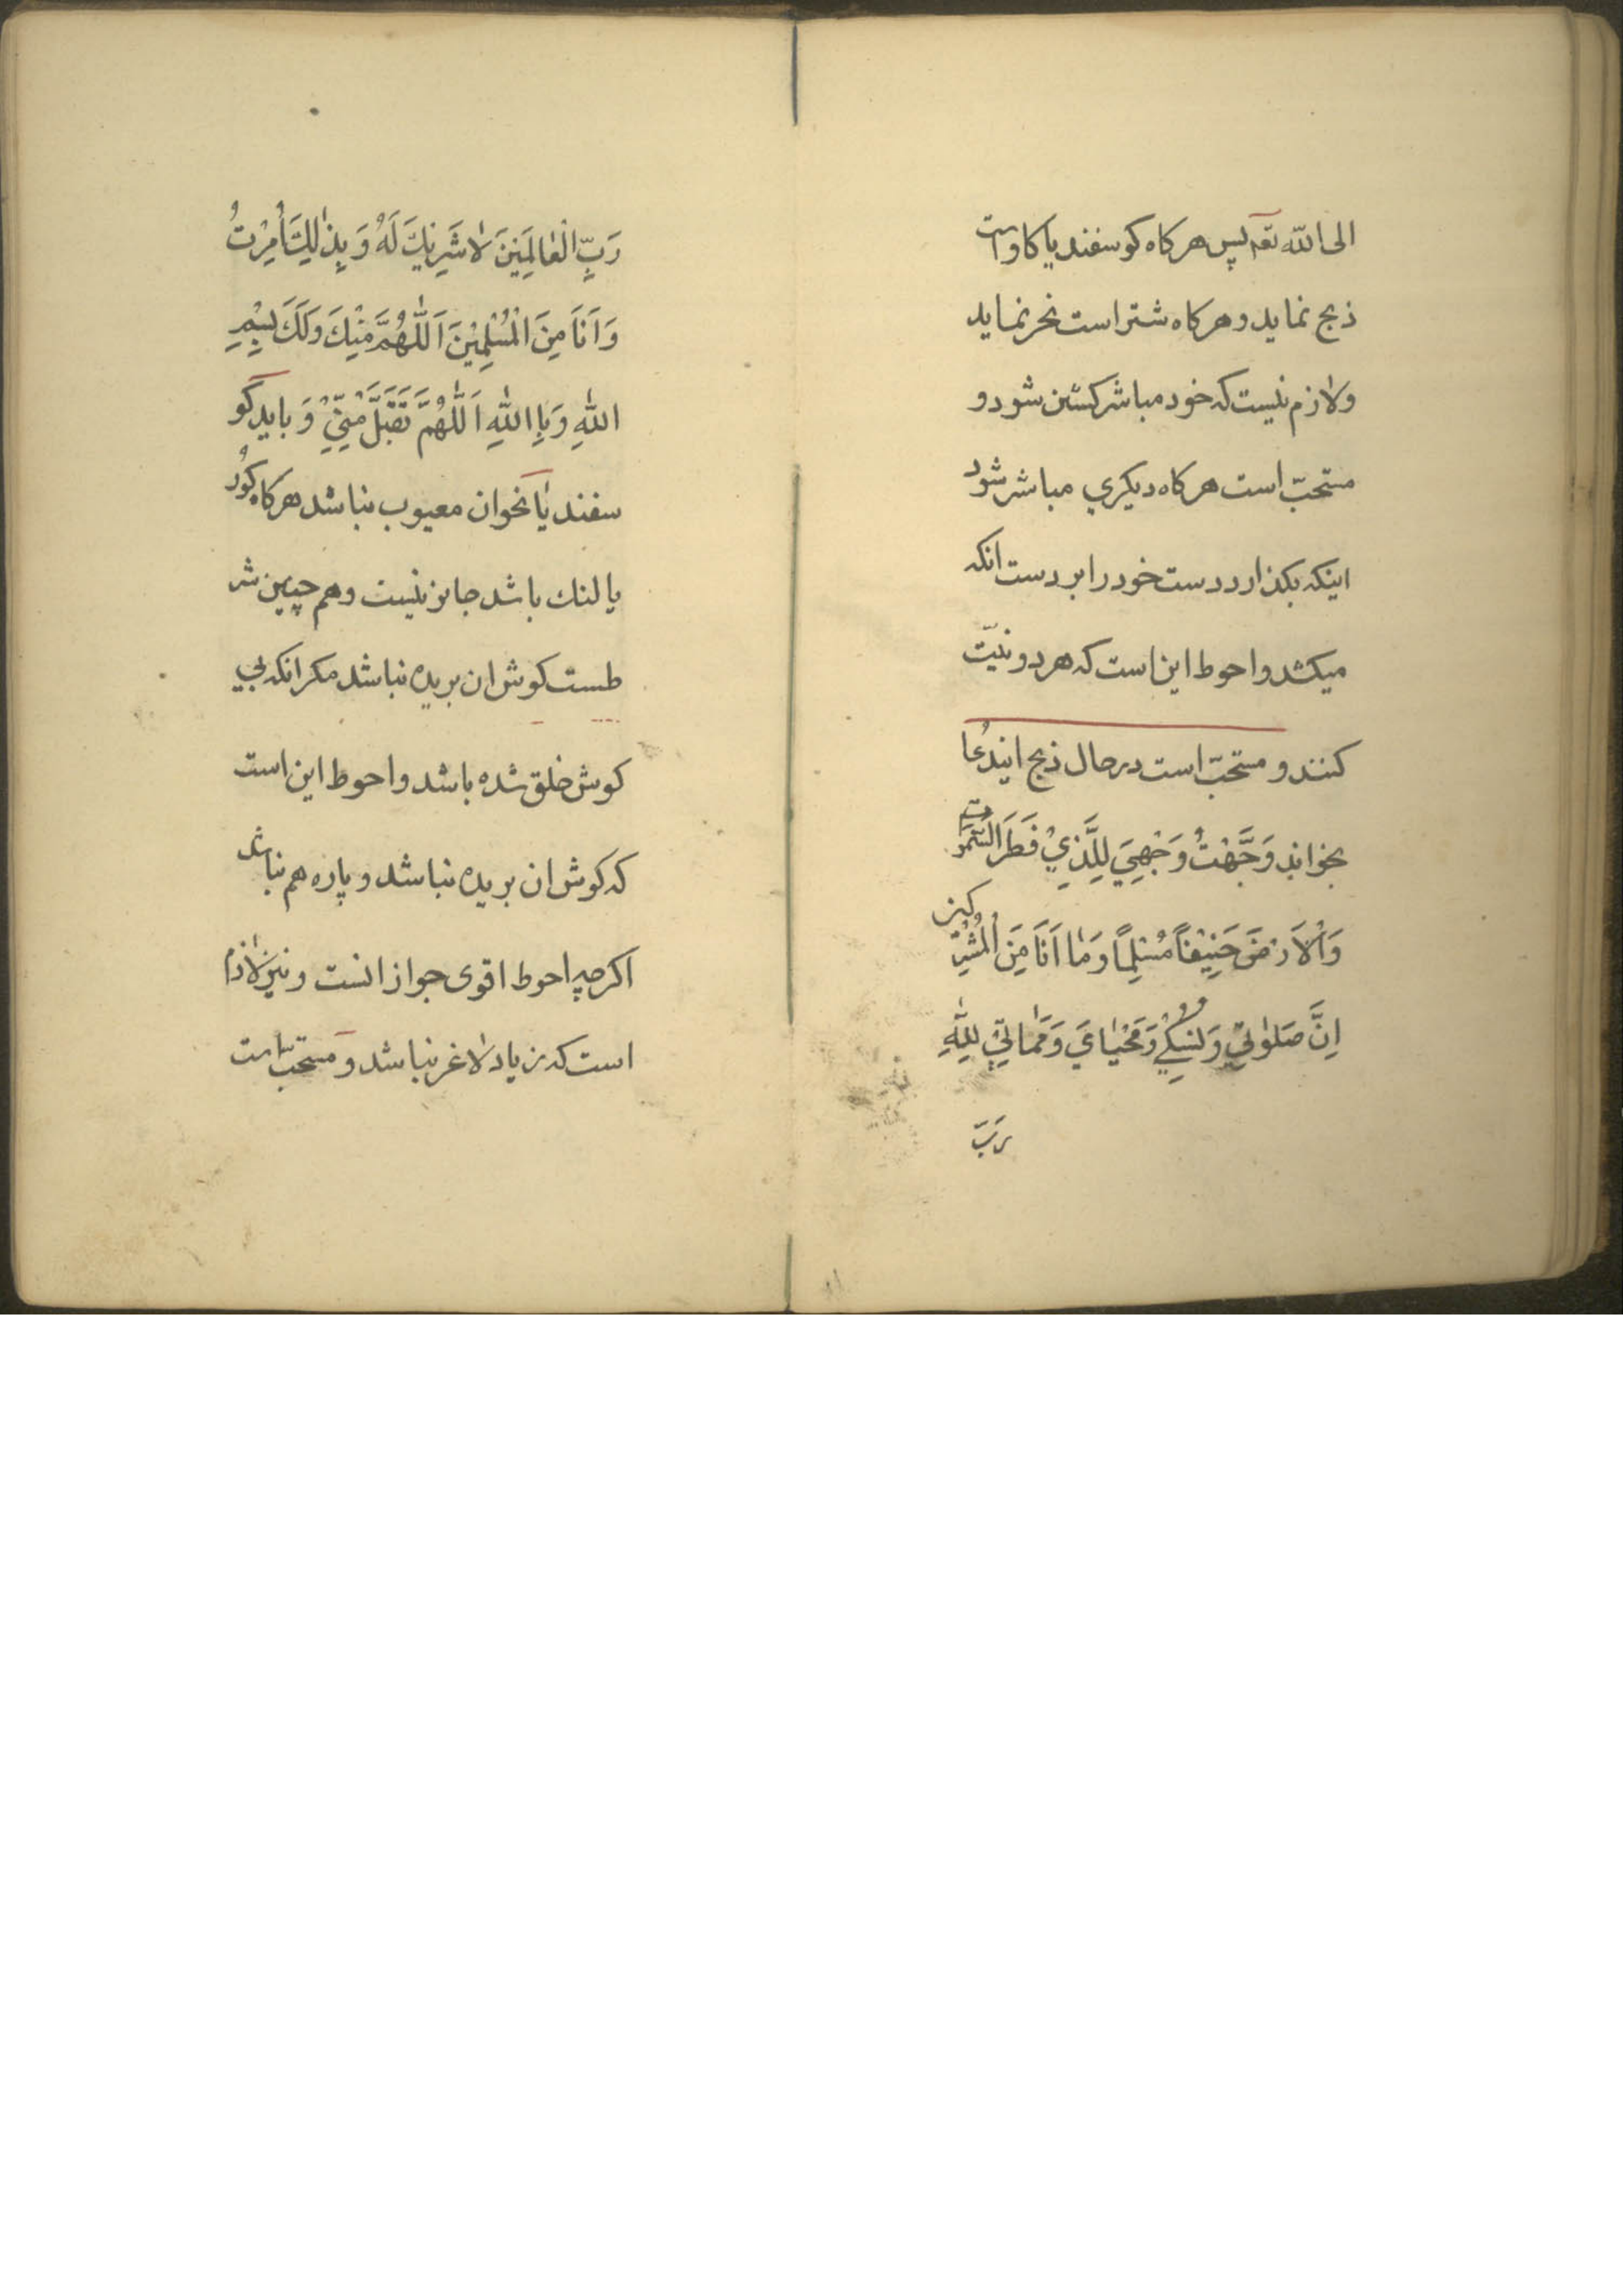 الی الله تعه پس هرکاه کوسفند یا کاو است
ذبح نماید و هرکاه شتر است نحر نماید
ولازم نیست که خود مباشر کشتن شود و
مستحبّ است هرکاه دیکري مباشر شود
اینکه بکذارد دست خود را بر دست انکه
میکشد و احوط این است که هر دو نیّت
کنند و مستحبّ است در حال ذبح ایندعا
بخواند وَجَّهْتُ وَجْهِيَ لِلَّذِيْ فَطَرَ السَّمٰوٰات
وَالْاَرْضَ حَنِيْفاً مُسْلِماً وَمٰا اَنَا مِنَ الْمُشْرِكين
اِنَّ صَلوٰتِيْ وَنُسُكِيْ وَمَحْيٰايَ وَمَمٰاتِيْ لِلّٰهِ
رَبّ
رَبِّ الْعٰالَمِيْنَ لاٰ شَرِيْكَ لَهُ وَ بِذٰلِكَ اُمِرْتُ
وَ اَنَا مِنَ الْمُسْلِمِيْنَ اَللّٰهُمَّ مِنْكَ وَلَكَ بِسْمِ
اللّٰهِ وَ بِا اللّٰهِ اَللّٰهُمَّ تَقَبَّلْ مِنِّيْ وَ بایدکو
سفند یٰا نحوان معیوب نباشد هرکاه کوُر
یا لنك باشد جایز نیست و هم چنین شر
طست کوش ان بریده نباشد مکر انکه بي
کوش خلق شده باشد و احوط این است
که کوش ان بریده نباشد و پاره هم نباشد
اکرچه احوط اقوی جواز انست و نیز لاٰزم
است که زیاد لاٰغر نباشد و مستحبّ است